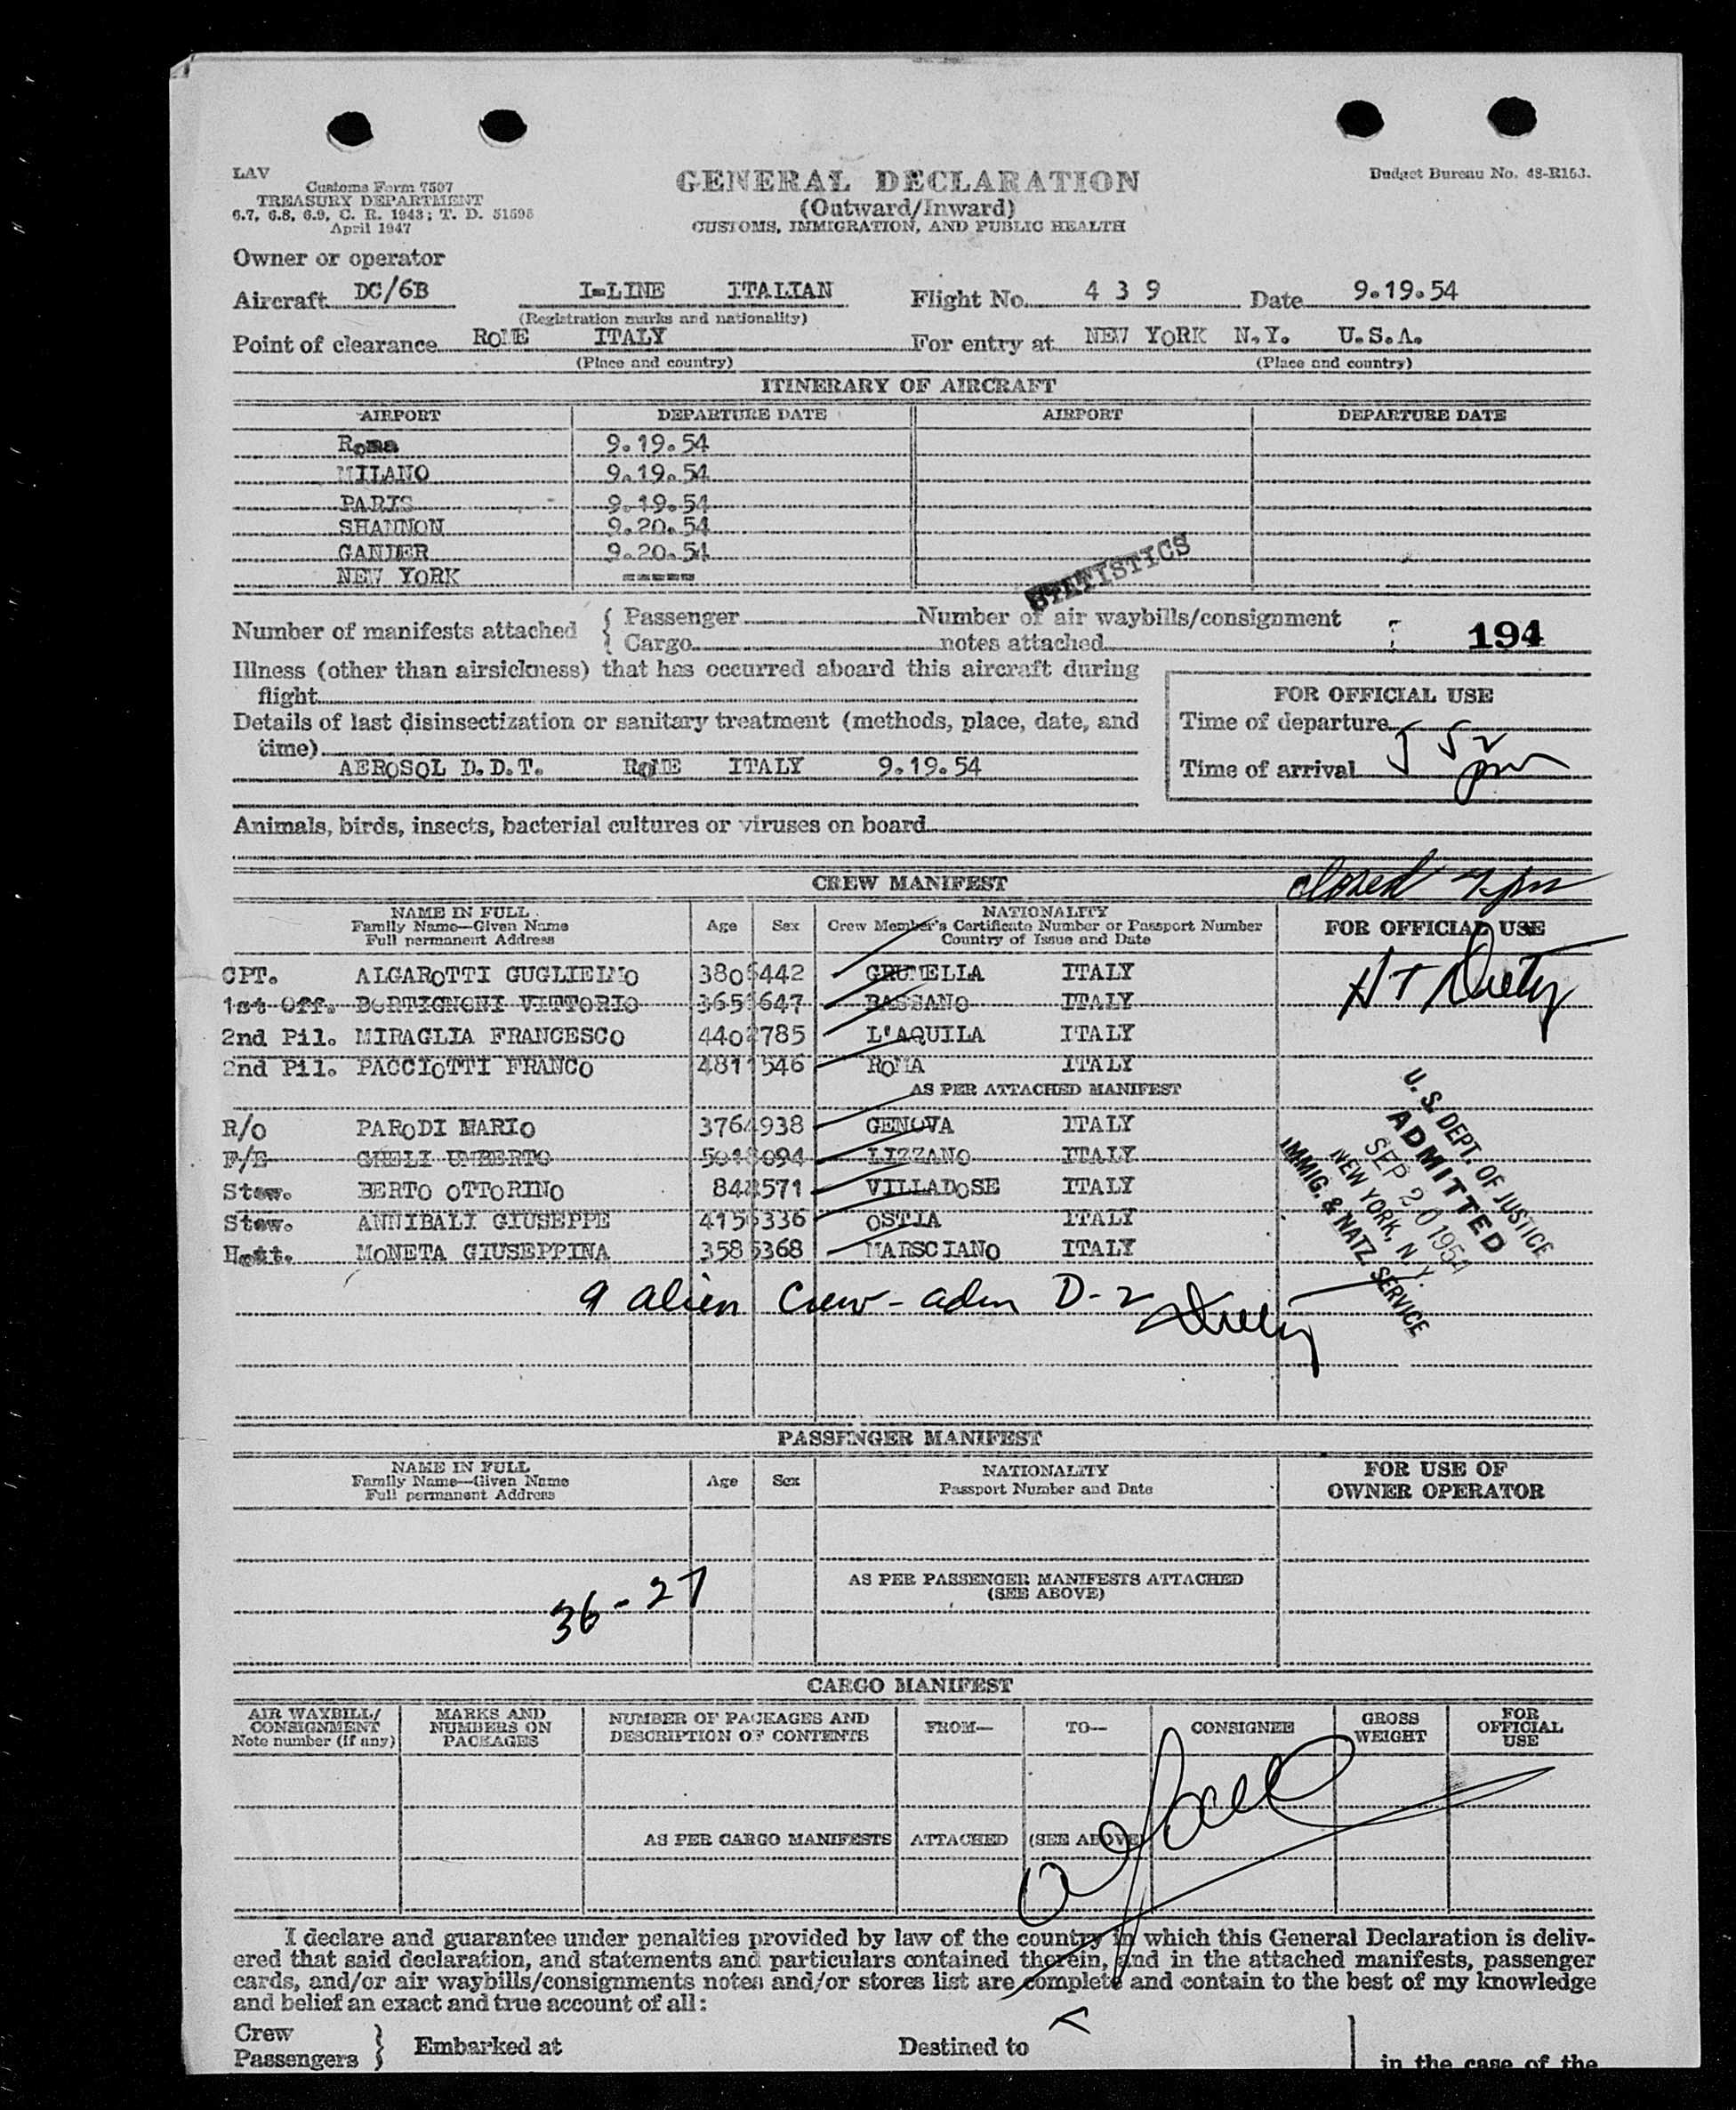 LAV
Customs Form 7507
TREASURY DEPARTMENT
6.7, 6.8, 6.9, C. R. 1943; T. D. 51595
April 1947
GENERAL DECLARATION
(Outward/Inward)
CUSTOMS, IMMIGRATION, AND PUBLIC HEALTH
Budget Bureau No. 48-R153.
Owner or operator
Aircraft DC/6B I-LINE ITALIAN Flight No. 4 3 9 Date 9.19.54
(Registration marks and nationality)
Point of clearance ROME ITALY For entry at NEW YORK N.Y. U.S.A.
(Place and country) (Place and country)
ITINERARY OF AIRCRAFT
AIRPORT DEPARTURE DATE AIRPORT DEPARTURE DATE
Roma 9.19.54
MILANO 9.19.54
PARIS 9.19.54
SHANNON 9.20.54
GANDER 9.20.54
NEW YORK -----
STATISTICS
Number of manifests attached { Passenger Number of air waybills/consignment
Cargo notes attached 194
Illness (other than airsickness) that has occurred aboard this aircraft during
flight
Details of last disinsectization or sanitary treatment (methods, place, date, and
time)
AEROSOL D.D.T. ROME ITALY 9.19.54
FOR OFFICIAL USE
Time of departure
Time of arrival 5 52 pm
Animals, birds, insects, bacterial cultures or viruses on board
CREW MANIFEST closed 7 pm
NAME IN FULL
Family Name—Given Name
Full permanent Address
Age Sex
NATIONALITY
Crew Member's Certificate Number or Passport Number
Country of Issue and Date
FOR OFFICIAL USE
CPT. ALGAROTTI GUGLIELMO 3805442 GRUMELLA ITALY
1st Off. BORTIGNONI VITTORIO 3651647 BASSANO ITALY
2nd Pil. MIRAGLIA FRANCESCO 4402785 L'AQUILA ITALY
2nd Pil. PACCIOTTI FRANCO 4811546 ROMA ITALY
AS PER ATTACHED MANIFEST
R/O PARODI MARIO 3764938 GENOVA ITALY
F/E GHELI UMBERTO 5018094 LIZZANO ITALY
Stew. BERTO OTTORINO 844571 VILLADOSE ITALY
Stew. ANNIBALI GIUSEPPE 4156336 OSTIA ITALY
Hott. MONETA GIUSEPPINA 3585368 MARSCIANO ITALY
U. S. DEPT. OF JUSTICE
ADMITTED
SEP 20 1954
NEW YORK, N. Y.
IMMIG. & NATZ. SERVICE
9 alien crew - adm D-2
PASSENGER MANIFEST
NAME IN FULL
Family Name—Given Name
Full permanent Address
Age Sex
NATIONALITY
Passport Number and Date
FOR USE OF
OWNER OPERATOR
AS PER PASSENGER MANIFESTS ATTACHED
(SEE ABOVE)
36-27
CARGO MANIFEST
AIR WAYBILL/
CONSIGNMENT
Note number (if any)
MARKS AND
NUMBERS ON
PACKAGES
NUMBER OF PACKAGES AND
DESCRIPTION OF CONTENTS
FROM—
TO—
CONSIGNEE
GROSS
WEIGHT
FOR
OFFICIAL
USE
AS PER CARGO MANIFESTS ATTACHED (SEE ABOVE)
I declare and guarantee under penalties provided by law of the country in which this General Declaration is deliv-
ered that said declaration, and statements and particulars contained therein, and in the attached manifests, passenger
cards, and/or air waybills/consignments notes and/or stores list are complete and contain to the best of my knowledge
and belief an exact and true account of all:
Crew
Passengers } Embarked at Destined to
in the case of the